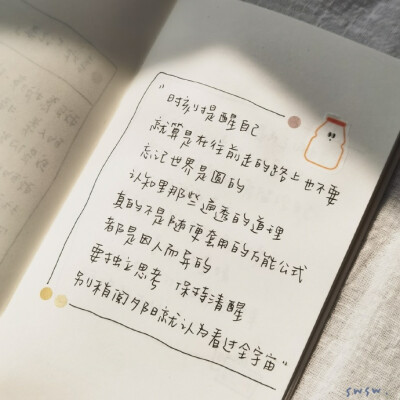 “时刻提醒自己
就算是在往前走的路上也不要
忘记世界是圆的
认知里那些通透的道理
真的不是随便套用的万能公式
都是因人而异的
要独立思考 保持清醒
别稍阅夕阳就认为看过全宇宙”
swsw.